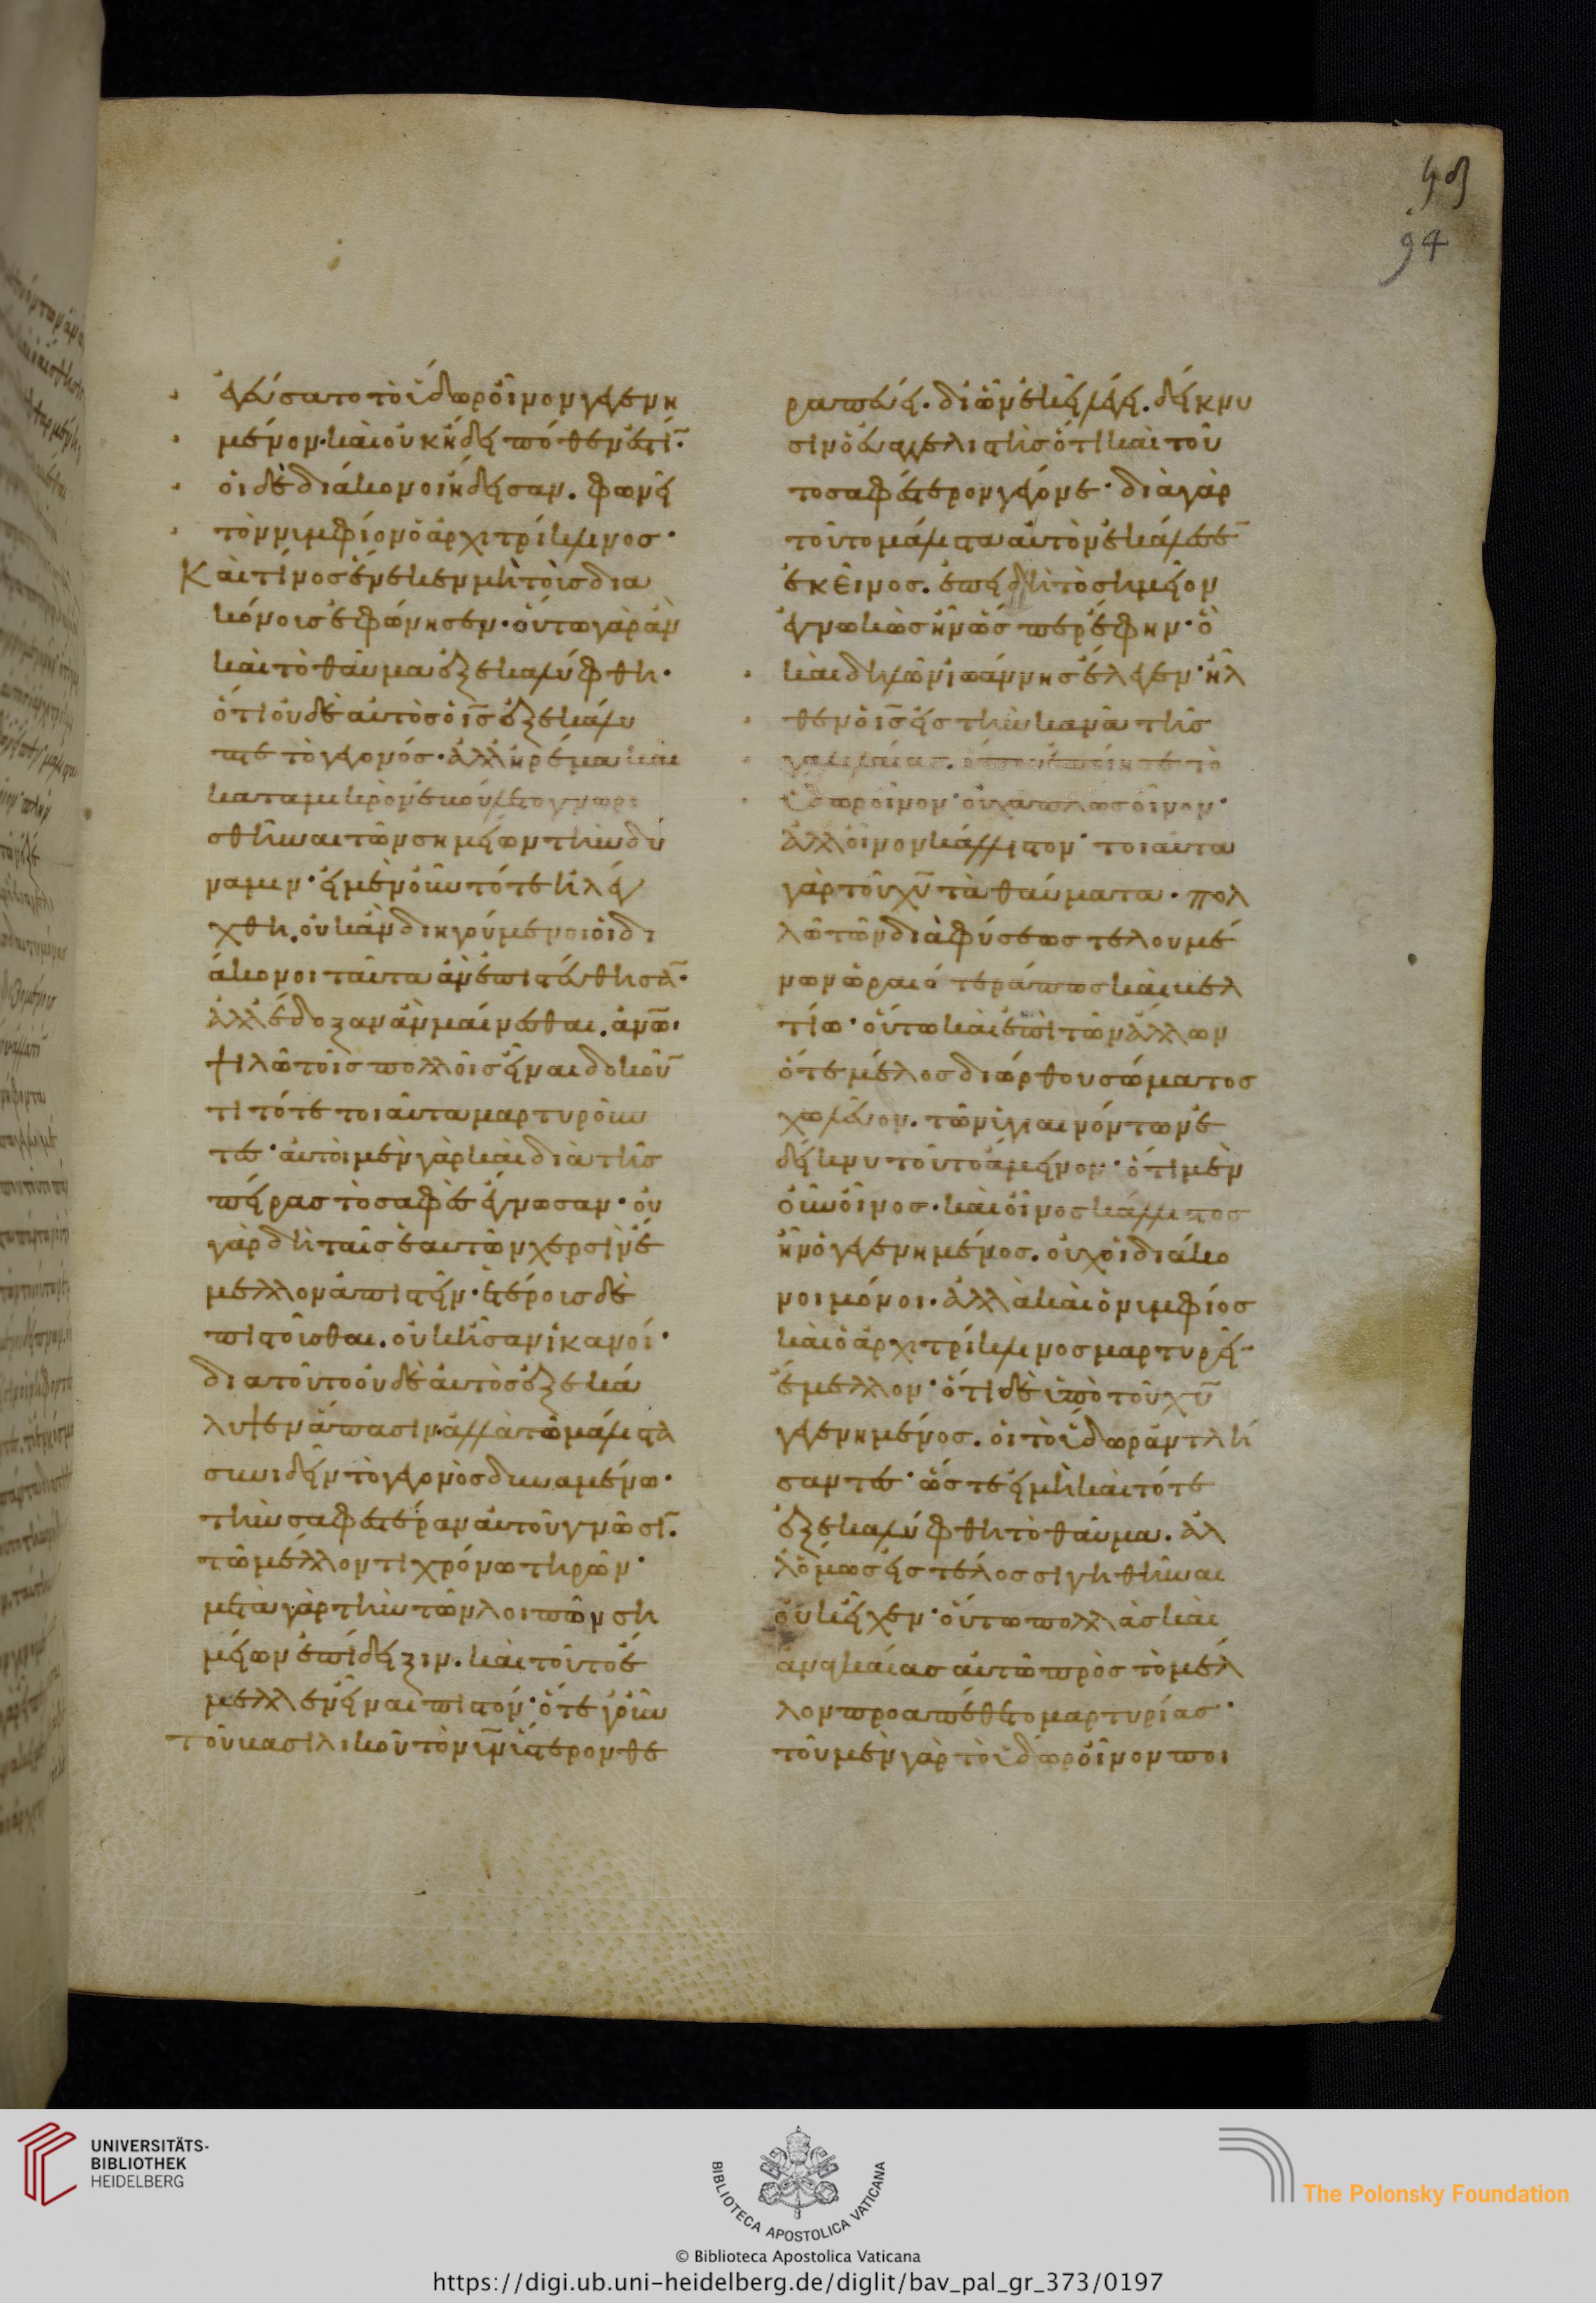 98
94
ἐγεύσατο τὸ ὕδωρ οἶνον γεγενη
μένον· καὶ οὐκ ἤδει πόθεν ἐστί̄·
οἱ δὲ διάκονοι ἤδεισαν. φωνεῖ
τὸν νυμφίον ὁ ἀρχιτρίκλινος·
Καὶ τίνος ἕνεκεν μὴ τοῖς δια
κόνοις ἐφώνησεν· οὕτω γὰρ ἂν
καὶ τὸ θαῦμα ἐξεκαλύφθη·
ὅτι οὐδὲ αὐτὸς ὁ ις̄ ἐξεκάλυ
πτε τὸ γεγονός· ἀλλ ἠρέμα καὶ
καταμικρὸν ἐβούλετο γνωρι
σθῆναι τῶν σημείων τὴν δύ
ναμιν· εἰ μὲν οὖν τότε ἠλέγ
χθη. οὐκ ἂν διηγούμενοι οἱ δι
άκονοι ταῦτα ἂν ἐπιστεύθησᾱ·
ἀλλ ἔδοξαν ἂν μαίνεσθαι. ἀνω̄·
ψιλῶ τοῖς πολλοῖς εἶναι δοκοῦ̄
τι τότε τοιαῦτα μαρτυροῦν
τες· αὐτοὶ μὲν γὰρ καὶ διὰ τῆς
πείρας τὸ σαφὲς ἔγνωσαν· οὐ
γὰρ δὴ ταῖς ἑαυτῶν χερσὶν ἔ
μελλον ἀπιστεῖν· ἑτέροις δὲ
πιστοῦσθαι. οὐκ ἦσαν ἱκανοί·
διατοῦτο οὐδὲ αὐτὸς ἐξεκά
λυψεν ἅπασιν. ἀλλὰ τῶ μάλιστα
συνιδεῖν τὸ γεγονὸς δυναμένω·
τὴν σαφεστέραν αὐτοῦ γνῶσῑ.
τῶ μέλλοντι χρόνω τηρῶν·
μετὰ γὰρ τὴν τῶν λοιπῶν ση
μείων ἐπίδειξιν. καὶ τοῦτο ἔ
μελλεν εἶναι πιστόν· ὅτε γοῦν
τοῦ βασιλικοῦ τὸν ῡν ὕστερον θε
ραπεύει. δι ὧν ἐκεῖ λέγει. δείκνυ
σιν ὁ εὐαγγελιστὴς ὅτι καὶ τοῦ
το σαφέστερον γέγονε· διὰ γὰρ
τοῦτο μάλιστα αὐτὸν ἐκάλεσε̄
ἐκεῖνος. ἐπειδὴ τὸ σημεῖον
ἐγνωκὼς ἦν ὥσπερ ἔφην· ὃ
καὶ δηλῶν ἰωάννης ἔλεγεν· ἦλ
θεν ὁ ις̄ εἰς τὴν κανᾶ τῆς
γαλιλαίας. ὅπου ἐποίησε τὸ
ὕδωρ οἶνον· οὐχ ἁπλῶς οἶνον·
ἀλλ οἶνον κάλλιστον· τοιαῦτα
γὰρ τοῦ χῡ τὰ θαύματα· πολ
λῶ τῶν διὰ φύσεως τελουμέ
νων ὡραιότερά πως καὶ βελ
τίω· οὕτω καὶ ἐπὶ τῶν ἄλλων
ὅτε μέλος διώρθου σώματος
χωλεῦον. τῶν ὑγιαινόντων ἐ
δείκνυ τοῦτο ἄμεινον· ὅτι μὲν
οὖν οἶνος. καὶ οἶνος κάλλιστος
ἦν ὁ γεγενημένος. οὐχ οἱ διάκο
νοι μόνοι. ἀλλὰ καὶ ὁ νυμφίος
καὶ ὁ ἀρχιτρίκλινος μαρτυρεῖν
ἔμελλον· ὅτι δὲ ὑπὸ τοῦ χῡ
γεγενημένος. οἱ τὸ ὕδωρ ἀντλή
σαντες· ὥστε εἰ μὴ καὶ τότε
ἐξεκαλύφθη τὸ θαῦμα. ἀλ
λ ὅμως εἰς τέλος σιγηθῆναι
οὐκ εἶχεν· οὕτω πολλὰς καὶ
ἀναγκαίας αὐτῶ πρὸς τὸ μέλ
λον προαπέθετο μαρτυρίας·
τοῦ μὲν γὰρ τὸ ὕδωρ οἶνον ποι
UNIVERSITÄTS-
BIBLIOTHEK
HEIDELBERG
BIBLIOTECA APOSTOLICA VATICANA
The Polonsky Foundation
© Biblioteca Apostolica Vaticana
https://digi.ub.uni-heidelberg.de/diglit/bav_pal_gr_373/0197